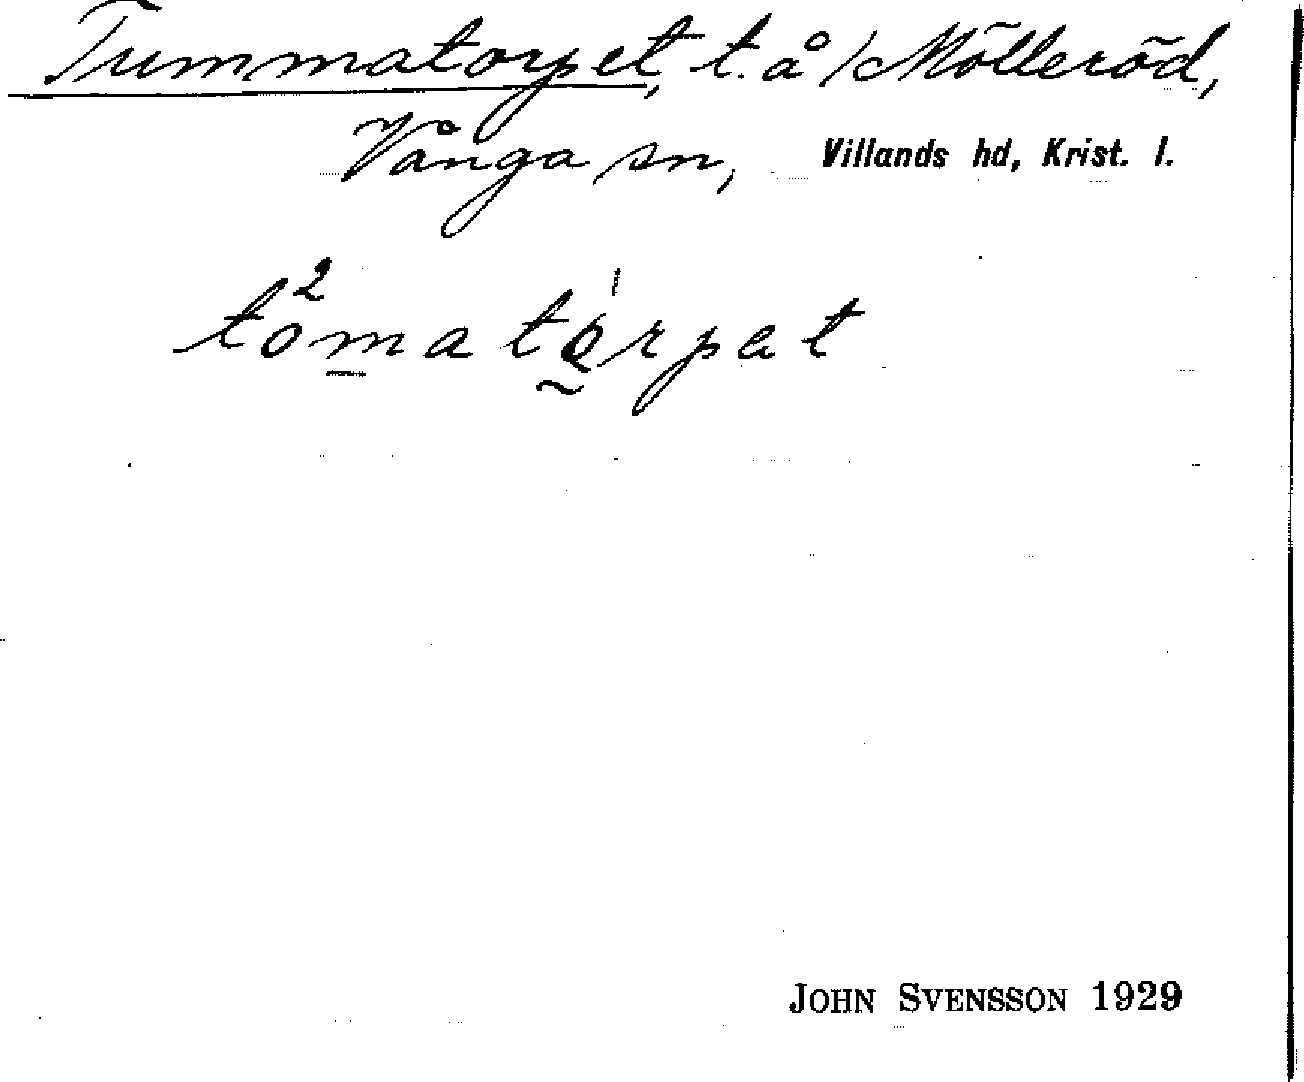 Tummatorpet, t. å /Mölleröd,
Vånga sn, Villands hd, Krist. l.
to²mato¹rpat
JOHN SVENSSON 1929